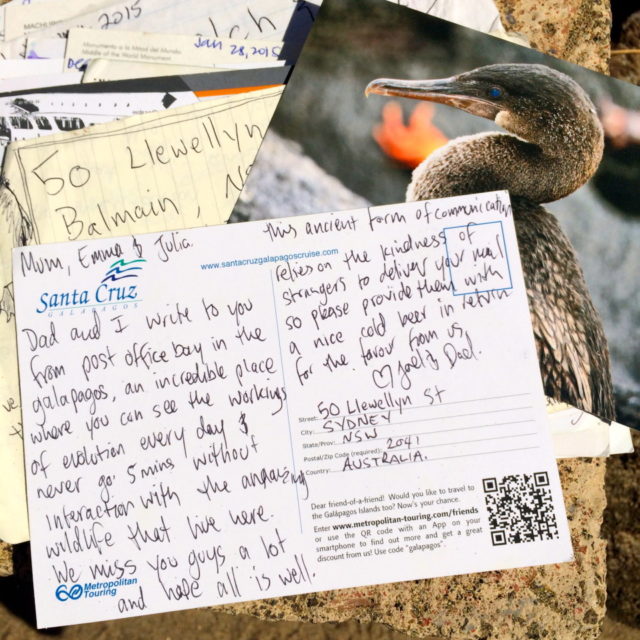 2015
Monumento a la Mitad del Mundo
of the World Monument
Jan 28, 2015
50 Llewellyn
Balmain,
Mum, Emma & Julia.
Santa Cruz
GALAPAGOS
www.santacruzgalapagoscruise.com
Dad and I write to you
from post office bay in the
galapagos, an incredible place
where you can see the workings
of evolution every day &
never go 5 mins without
interaction with the amazing
wildlife that live here.
We miss you guys a lot
and hope all is well.
Metropolitan
Touring
This ancient form of communication
relies on the kindness of
strangers to deliver your mail
so please provide them with
a nice cold beer in return
for the favor from us
♡ Joel & Dad.
Street: 50 Llewellyn St
City: SYDNEY
State/Prov: NSW
Postal/Zip Code (required): 2041
Country: AUSTRALIA.
Dear friend-of-a-friend! Would you like to travel to
the Galápagos Islands too? Now's your chance.
Enter www.metropolitan-touring.com/friends
or use the QR code with an App on your
smartphone to find out more and get a great
discount from us! Use code "galapagos".